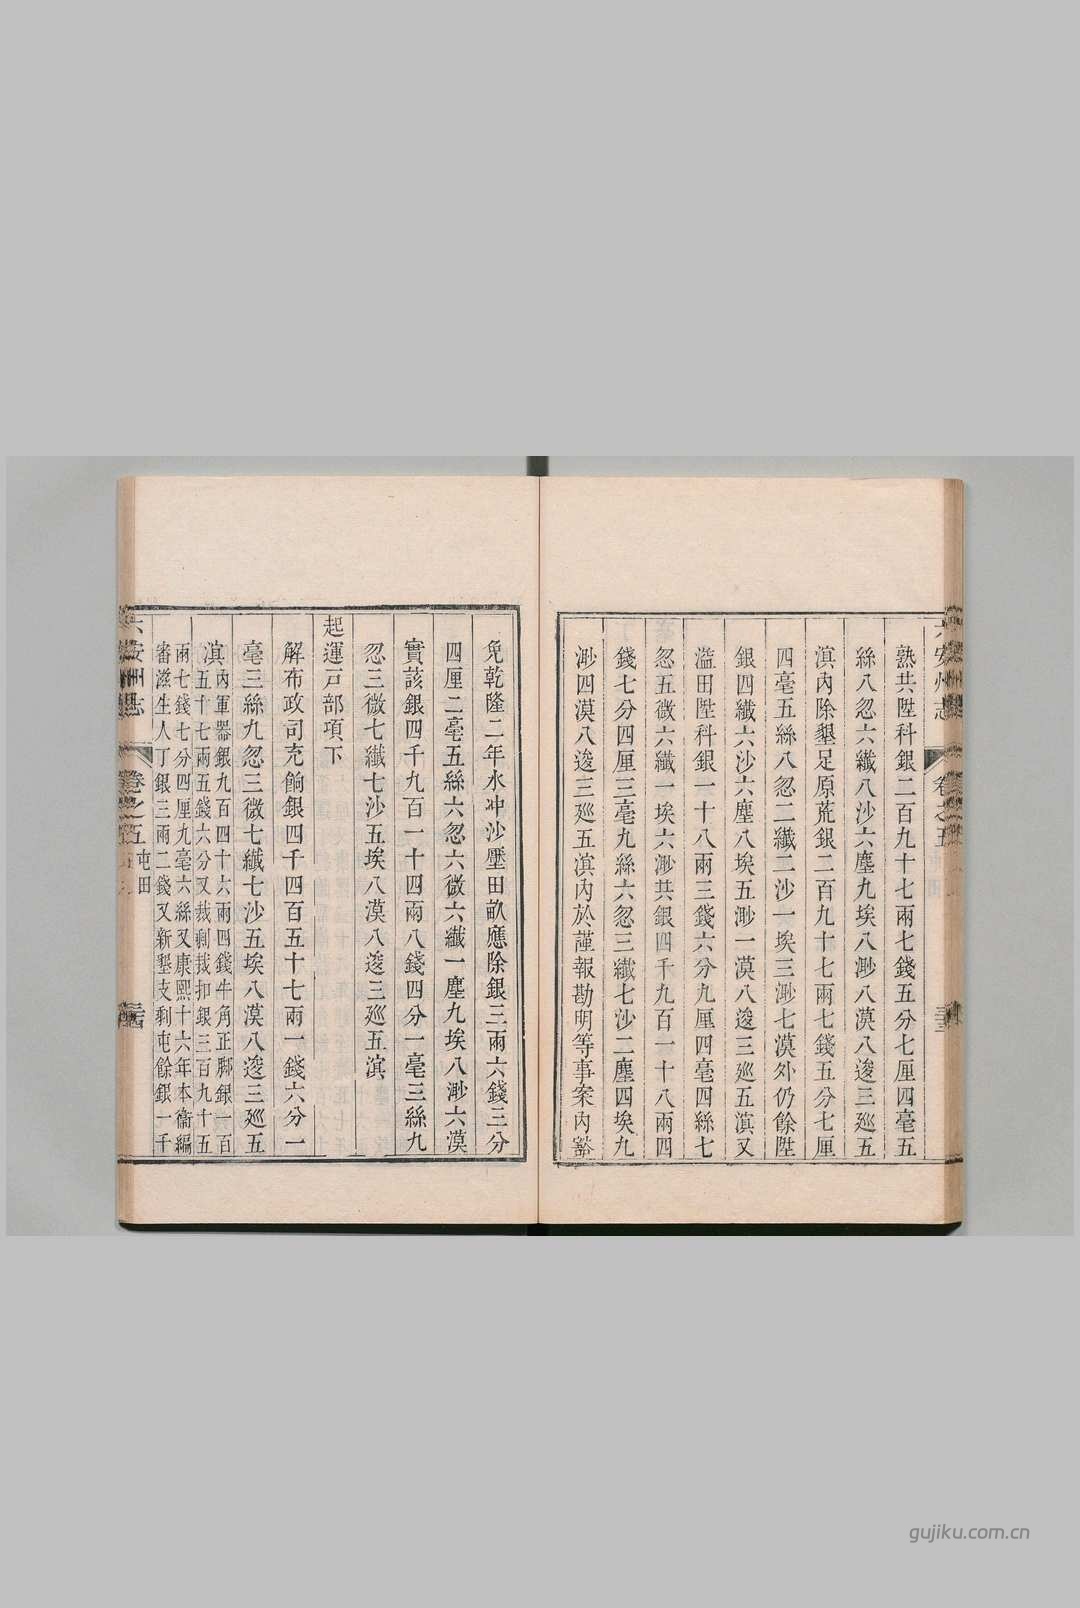 六安州志 卷之五 三十三
熟共陞科銀二百九十七兩七錢五分七厘四毫五
絲八忽六纖八沙六塵九埃八渺八漠八逡三廵五
滇內除墾足原荒銀二百九十七兩七錢五分七厘
四毫五絲八忽二纖二沙一埃三渺七漠外仍餘陞
銀四纖六沙六塵八埃五渺一漠八逡三廵五滇又
溢田陞科銀一十八兩三錢六分九厘四毫四絲七
忽五微六纖一埃六渺共銀四千九百一十八兩四
錢七分四厘三毫九絲六忽三纖七沙二塵四埃九
渺四漠八逡三廵五滇內於謹報勘明等事案內豁
免乾隆二年水冲沙壓田畝應除銀三兩六錢三分
四厘二毫五絲六忽六微六纖一塵九埃八渺六漠
實該銀四千九百一十四兩八錢四分一毫三絲九
忽三微七纖七沙五埃八漠八逡三廵五滇
起運戸部項下
解布政司充餉銀四千四百五十七兩一錢六分一
毫三絲九忽三微七纖七沙五埃八漠八逡三廵五
滇內軍器銀九百四十六兩四錢牛角正脚銀一百
五十七兩五錢六分又裁剩裁扣銀三百九十五
兩七錢七分四厘九毫六絲又康熙十六年本衞編
審滋生人丁銀三兩二錢又新墾支剩屯餘銀一千
六安州志 卷之五 屯田 三十四
gujiku.com.cn